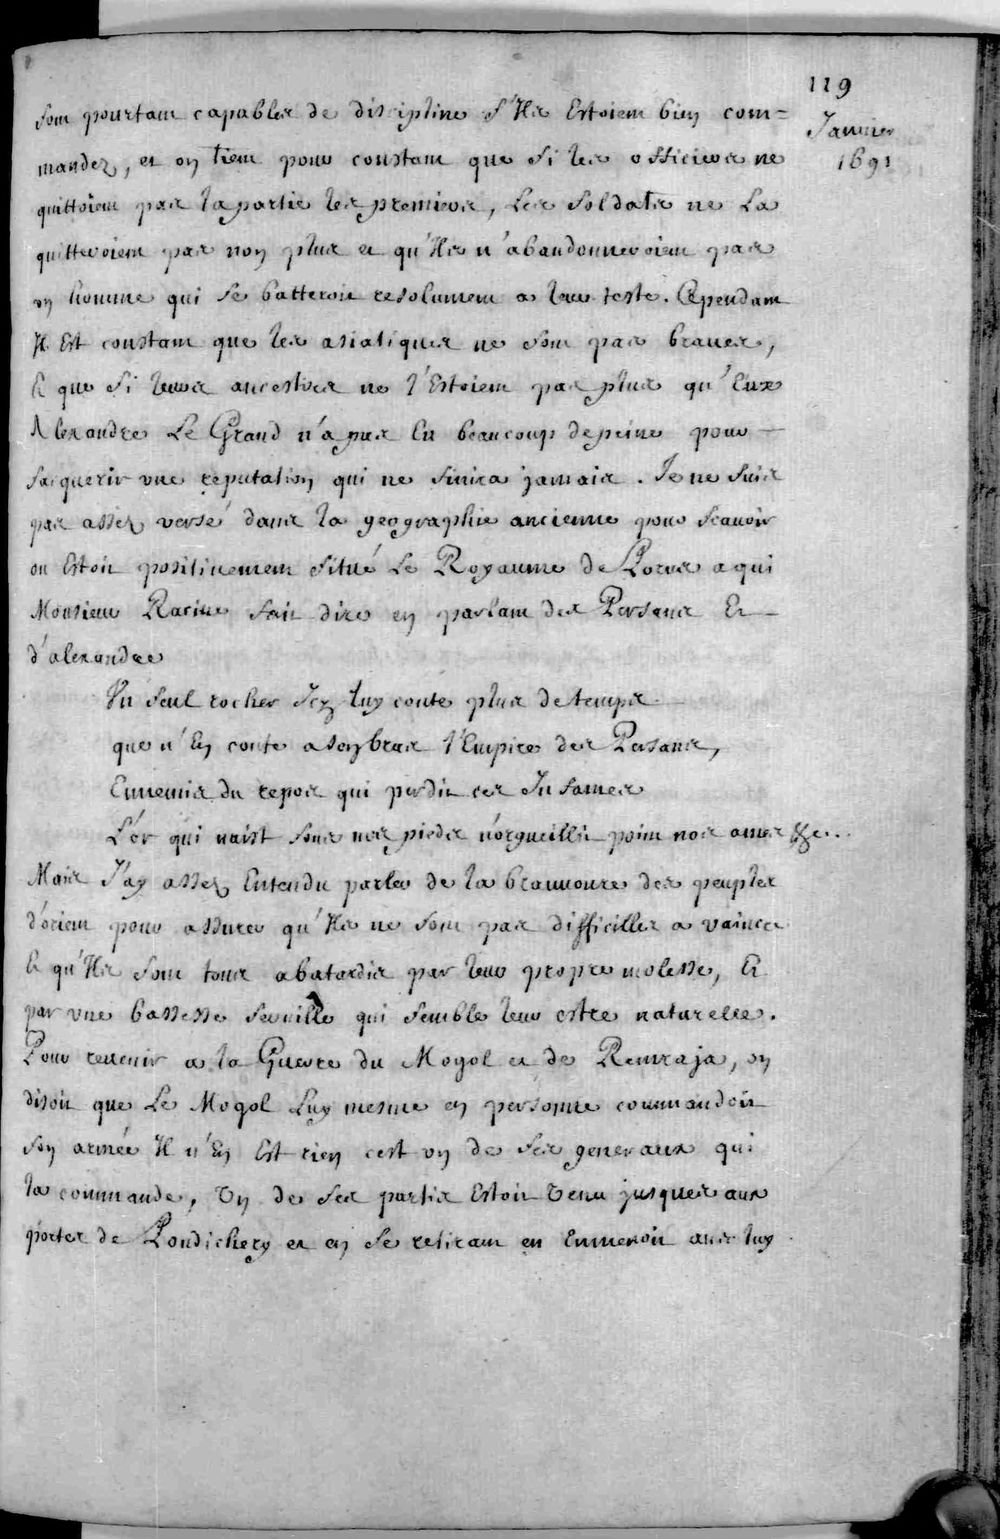 119
Janvier
1691
sont pourtant capables de discipline s'Ils Estoient bien com=
mandez, et on tient pour constant que si les officiers ne
quittoient pas la partie les premiers, Les soldats ne La
quitteroient pas non plus et qu'Ils n'abandonneroient pas
un homme qui se batteroit resolument a leur teste. Cependant
Il Est constant que les asiatiques ne sont pas braves,
Et que si leurs ancestres ne l'Estoient pas plus qu'Eux
Alexandre Le Grand n'a pas Eu beaucoup de peine pour
s'acquerir une reputation qui ne finira jamais. Je ne suis
pas assez versé dans la geographie ancienne pour scavoir
ou Estoit positivement situé Le Royaume de Porus a qui
Monsieur Racine fait dire en parlant des Persans Et
d'alexandre
Un seul rocher Icy luy coute plus de temps
que n'En coute a son bras l'Empire des Persans,
Ennemis du repos qui perdit ces Infames
L'or qui naist sous nos pieds n'orgueillit point nos ames &c..
Mais J'ay assez Entendu parler de la bravoure des peuples
d'orient pour assurer qu'Ils ne sont pas difficilles a vaincre
Et qu'Ils sont tous abatardis par leur propre molesse, Et
par une bassesse serville qui semble leur estre naturelle.
Pour revenir a la Guerre du Mogol et de Remraja, on
disoit que Le Mogol Luy mesme en personne commandoit
son armée Il n'En Est rien cest un de ses generaux qui
la commande, Un de ses partis Estoit Venu jusques aux
portes de Pondichery et en se retirant en Emmenoit avec luy